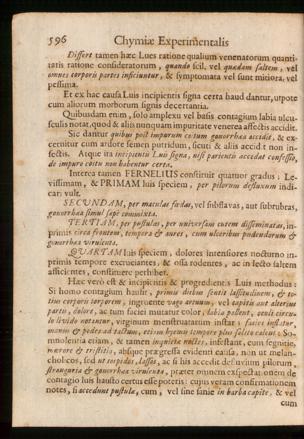 596 Chymiæ Experimentalis
Differt tamen hæc Lues ratione qualium venenatorum quanti-
tatis ratione consideratorum, quando scil. vel quædam saltem, vel
omnes corporis partes inficiuntur, & symptomata vel sunt mitiora, vel
pessima.
Et ex hac causa Luis incipientis signa certa haud dantur, utpote
cum aliorum morborum signis decertantia.
Quibusdam enim, solo amplexu vel basis contagium labia ulcu-
sculis notat, quod & aliis nunquam impuritate venerea affectis accidit.
Sic dantur quibus post impurum coitum gonorrhœa accidit, & ex-
cernitur cum ardore semen putridum, sicuti & aliis accidit non in-
fectis. Atque ita incipientis Luis signa, nisi patientis accedat confessio,
de impuro coitu non habentur certa.
Interea tamen FERNELIUS constituit quatuor gradus: Le-
vissimam, & PRIMAM luis speciem, per pilorum defluxum indi-
cat: vult.
SECUNDAM, per maculas fœdas, vel subflavas, aut subrubras,
gonorrhœa simul sæpe commixta.
TERTIAM, per pustulas, per universam cutem disseminatas, in-
primis circa frontem, tempora & aures, cum ulceribus pudendorum &
gonorrhœa virulenta.
QUARTAM luis speciem, dolores intensiores nocturno in-
primis tempore excruciantes, & ossa rodentes, ac in lecto saltem
afficientes, constituere perhibet.
Hæc verò est & incipientis & progredientis Luis methodus:
Si homo contagium hausit, primis diebus sentit lassitudinem & to-
tius corporis torporem, ingruente vago artuum, vel capitis aut alterius
partis, dolore, ac tum faciei mutatur color, labia pallent, oculi circum
se livido notantur, virginum menstruatarum instar: facies inflatur,
manus & pedes ad tactum, etiam hyemis tempore plus solito calent: So-
mnolentia etiam, & tamen inquietæ noctes, infestant, cum segnitie,
mœrore & tristitia, absque prægressa evidenti causa, non ut melan-
cholicos, sed ut torpidos, lassos, ac si his accedit defluvium pilorum,
stranguria & gonorrhœa virulenta, præter omnem exspectationem de
contagio luis hausto certus esse poteris: cujus etiam confirmationem
notes, si accedunt pustulæ, cum, vel sine sanie in barba capite, & vel
cum